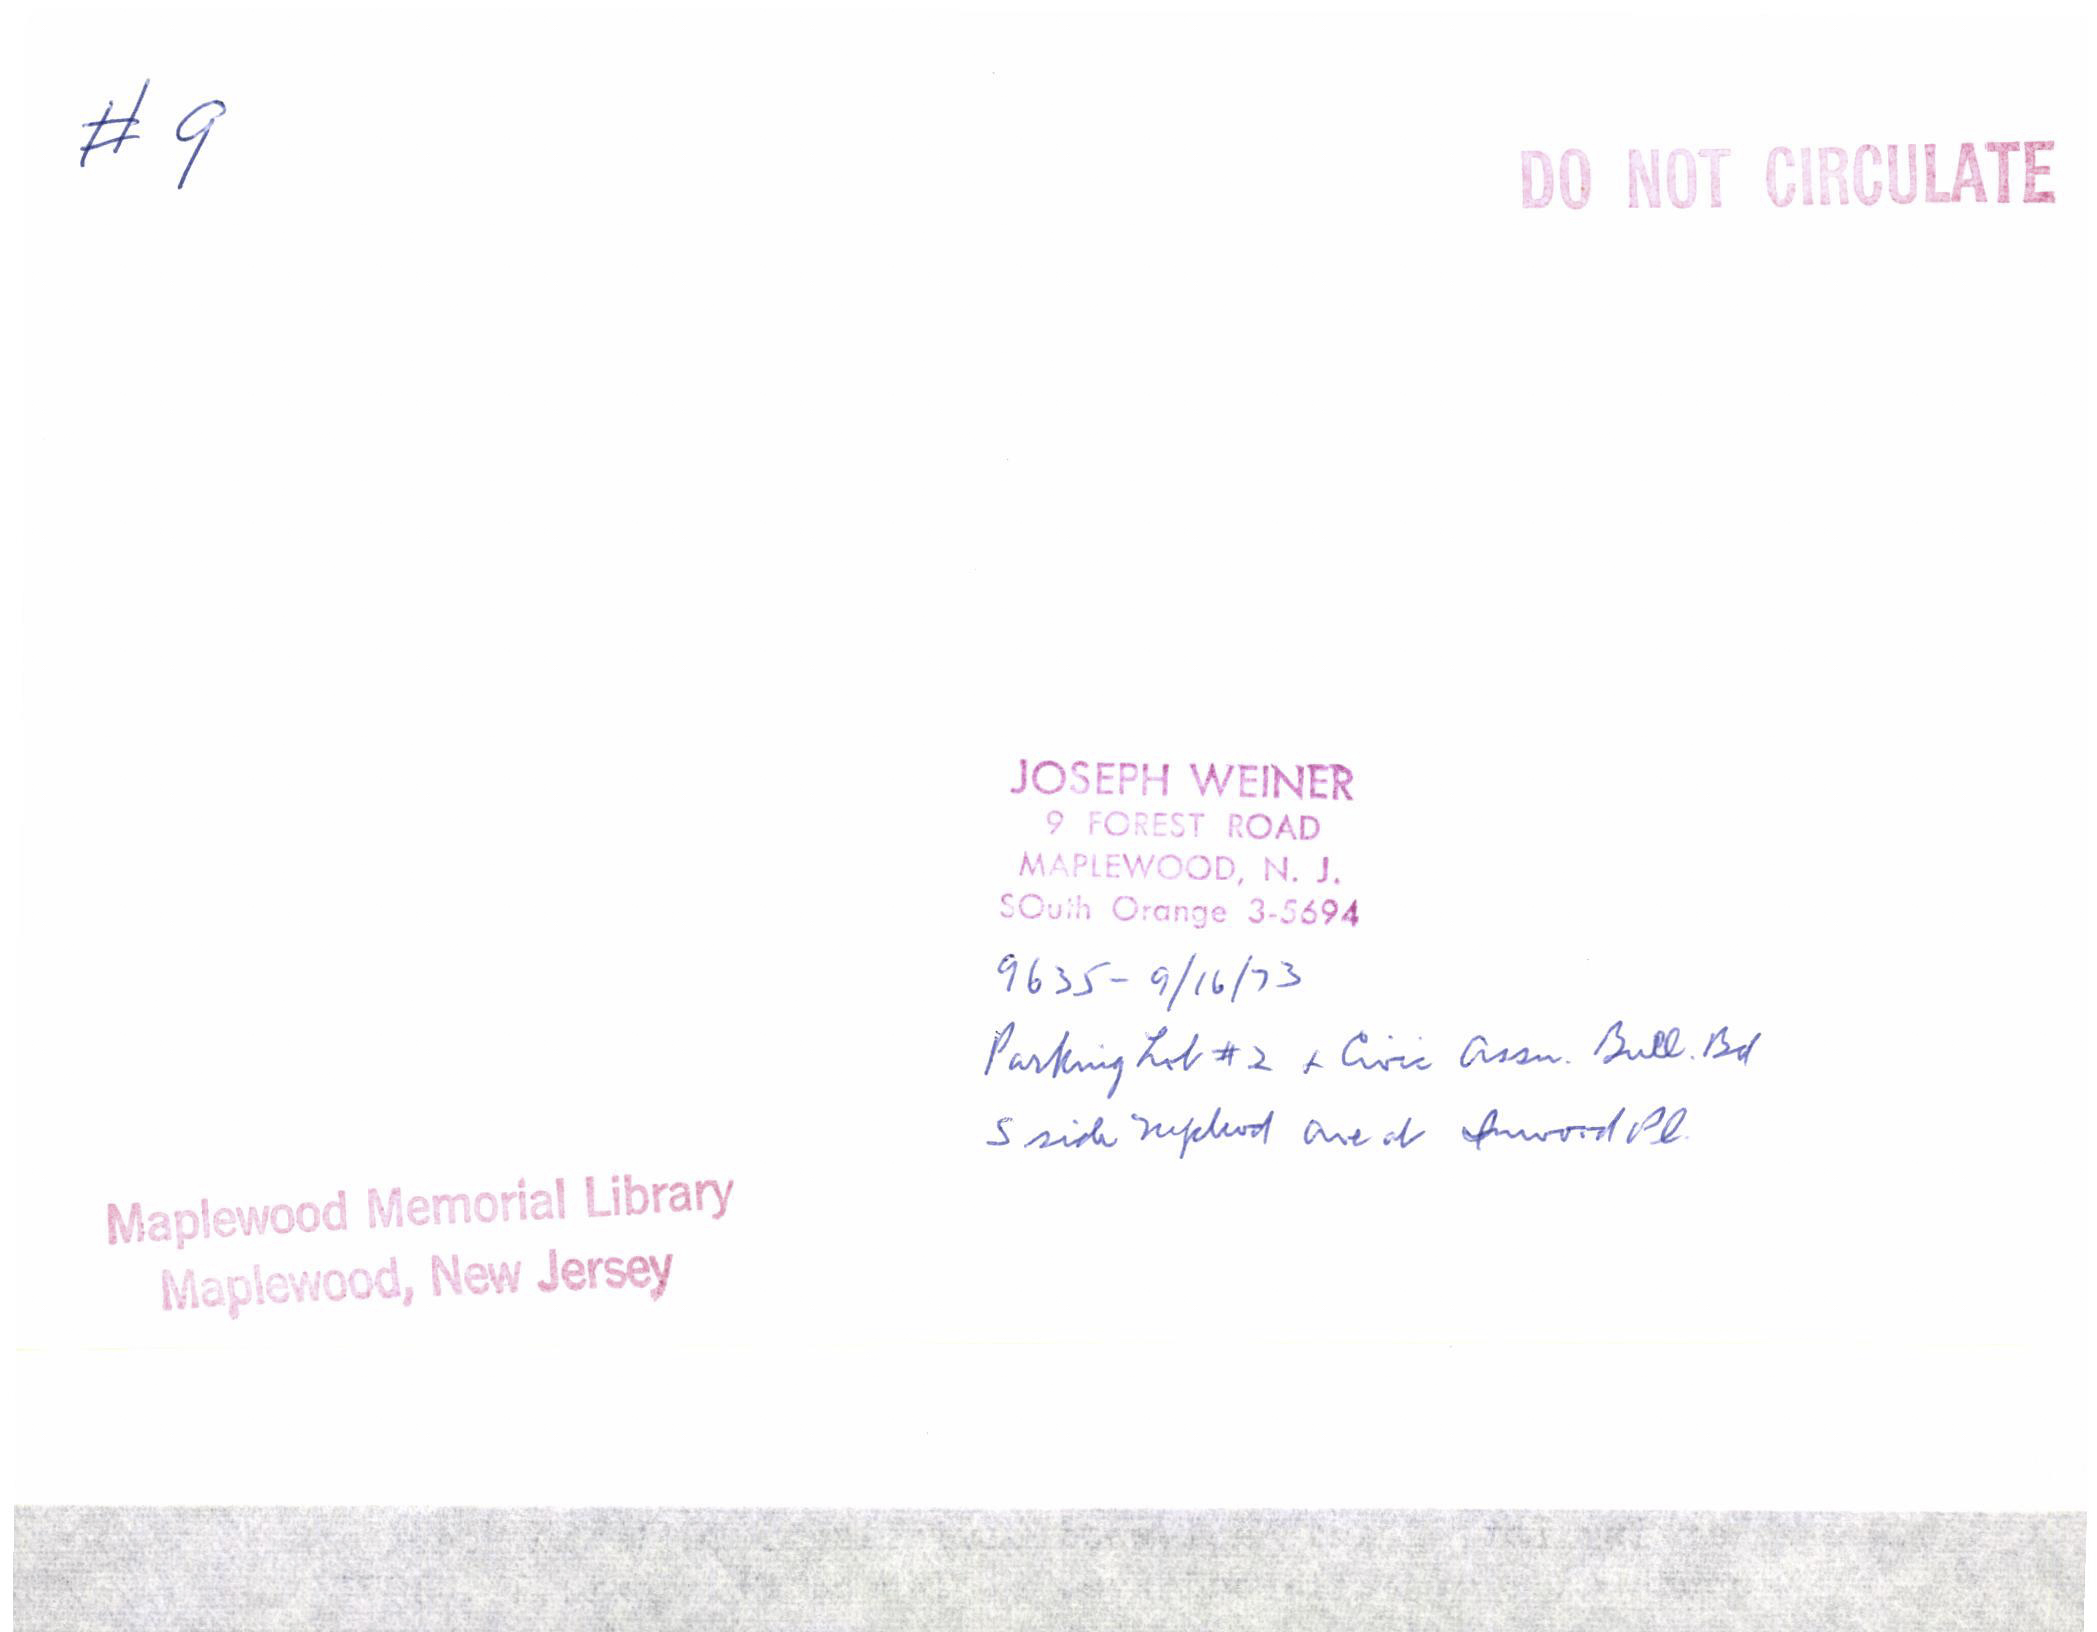 # 9
DO NOT CIRCULATE
JOSEPH WEINER
9 FOREST ROAD
MAPLEWOOD, N. J.
SOuth Orange 3-5694
9635 - 9/16/73
Parking Lot #2 + Civic Assn. Bull. Bd
S side Maplewood Ave at Inwood Pl.
Maplewood Memorial Library
Maplewood, New Jersey